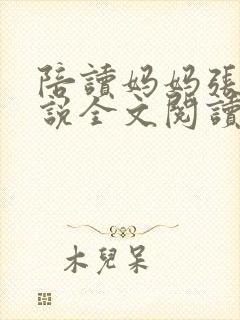 陪讀妈妈張
說全文閱讀
木兒呆